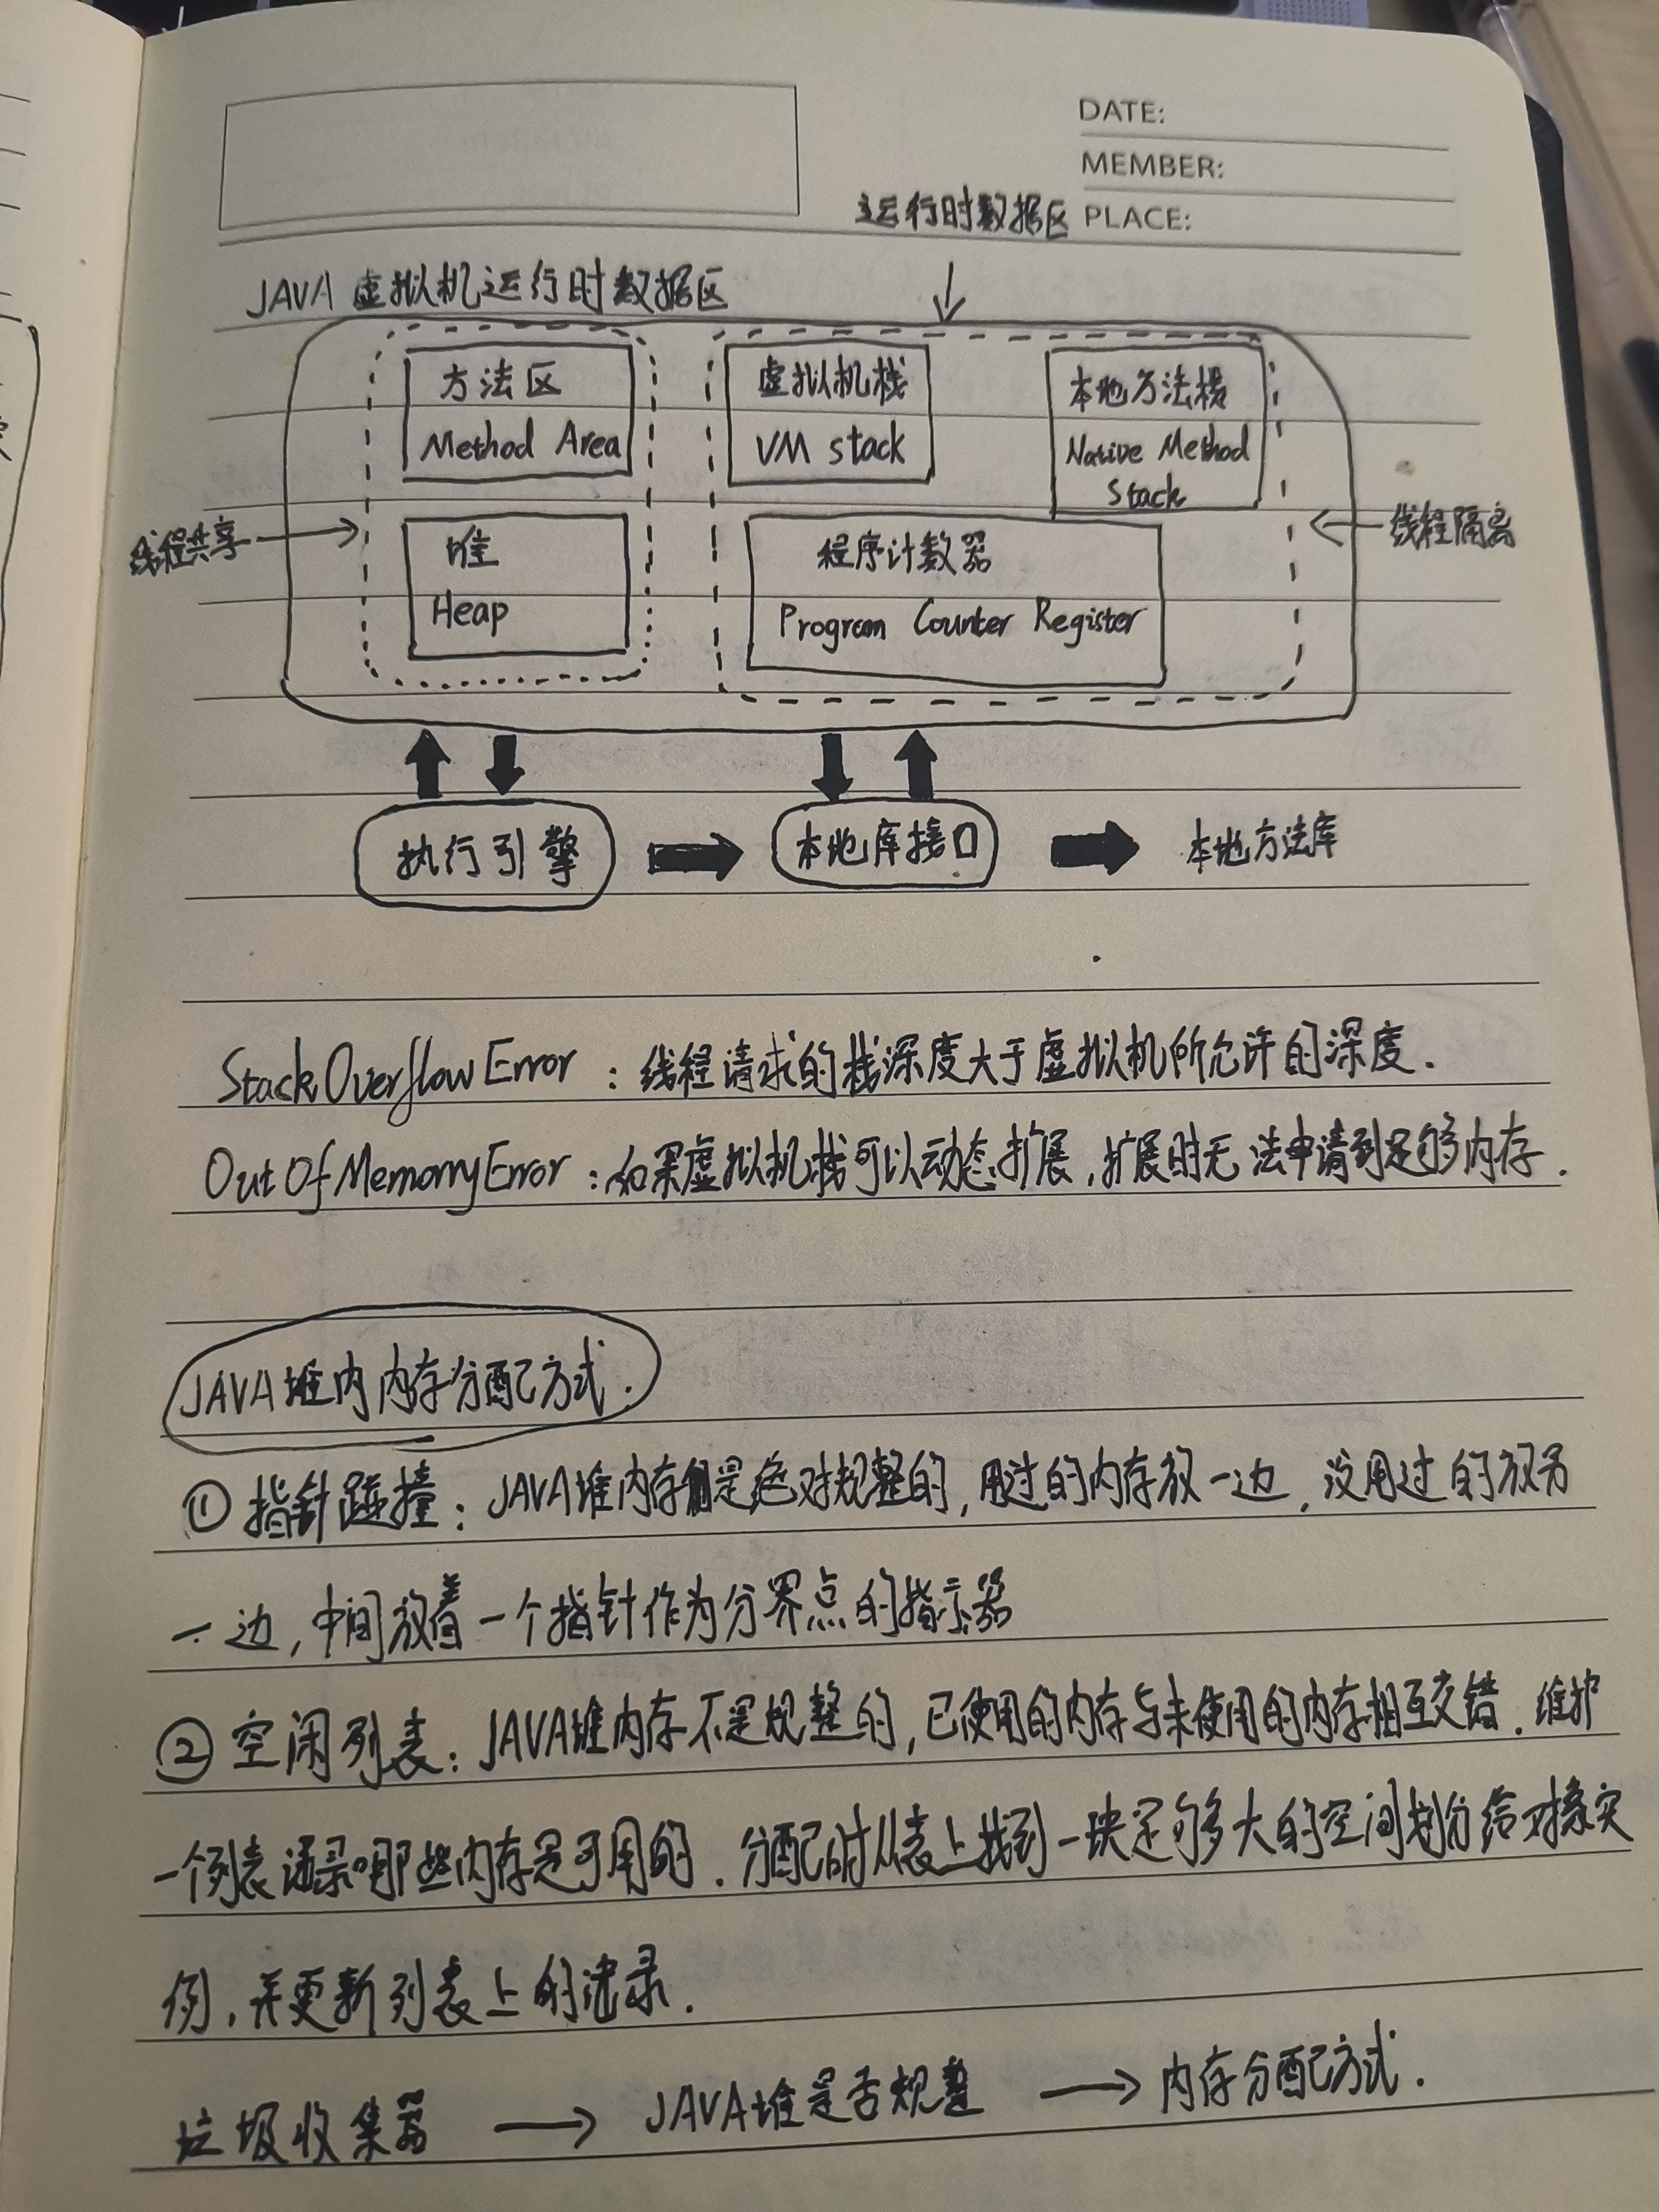 DATE:
MEMBER:
运行时数据区 PLACE:
JAVA 虚拟机运行时数据区
方法区
Method Area
虚拟机栈
VM stack
本地方法栈
Native Method
Stack
线程共享
线程隔离
堆
Heap
程序计数器
Program Counter Register
执行引擎
本地库接口
本地方法库
StackOverflowError：线程请求的栈深度大于虚拟机所允许的深度.
OutOfMemorryError：如果虚拟机栈可以动态扩展,扩展时无法申请到足够内存.
JAVA堆内内存分配方式.
① 指针碰撞：JAVA堆内存是绝对规整的,用过的内存放一边,没用过的放另
一边,中间放着一个指针作为分界点的指示器
② 空闲列表：JAVA堆内存不是规整的,已使用的内存与未使用的内存相互交错.维护
一个列表记录哪些内存是可用的.分配时从表上找到一块足够大的空间划分给对象实
例,并更新列表上的记录.
垃圾收集器 → JAVA堆是否规整 → 内存分配方式.